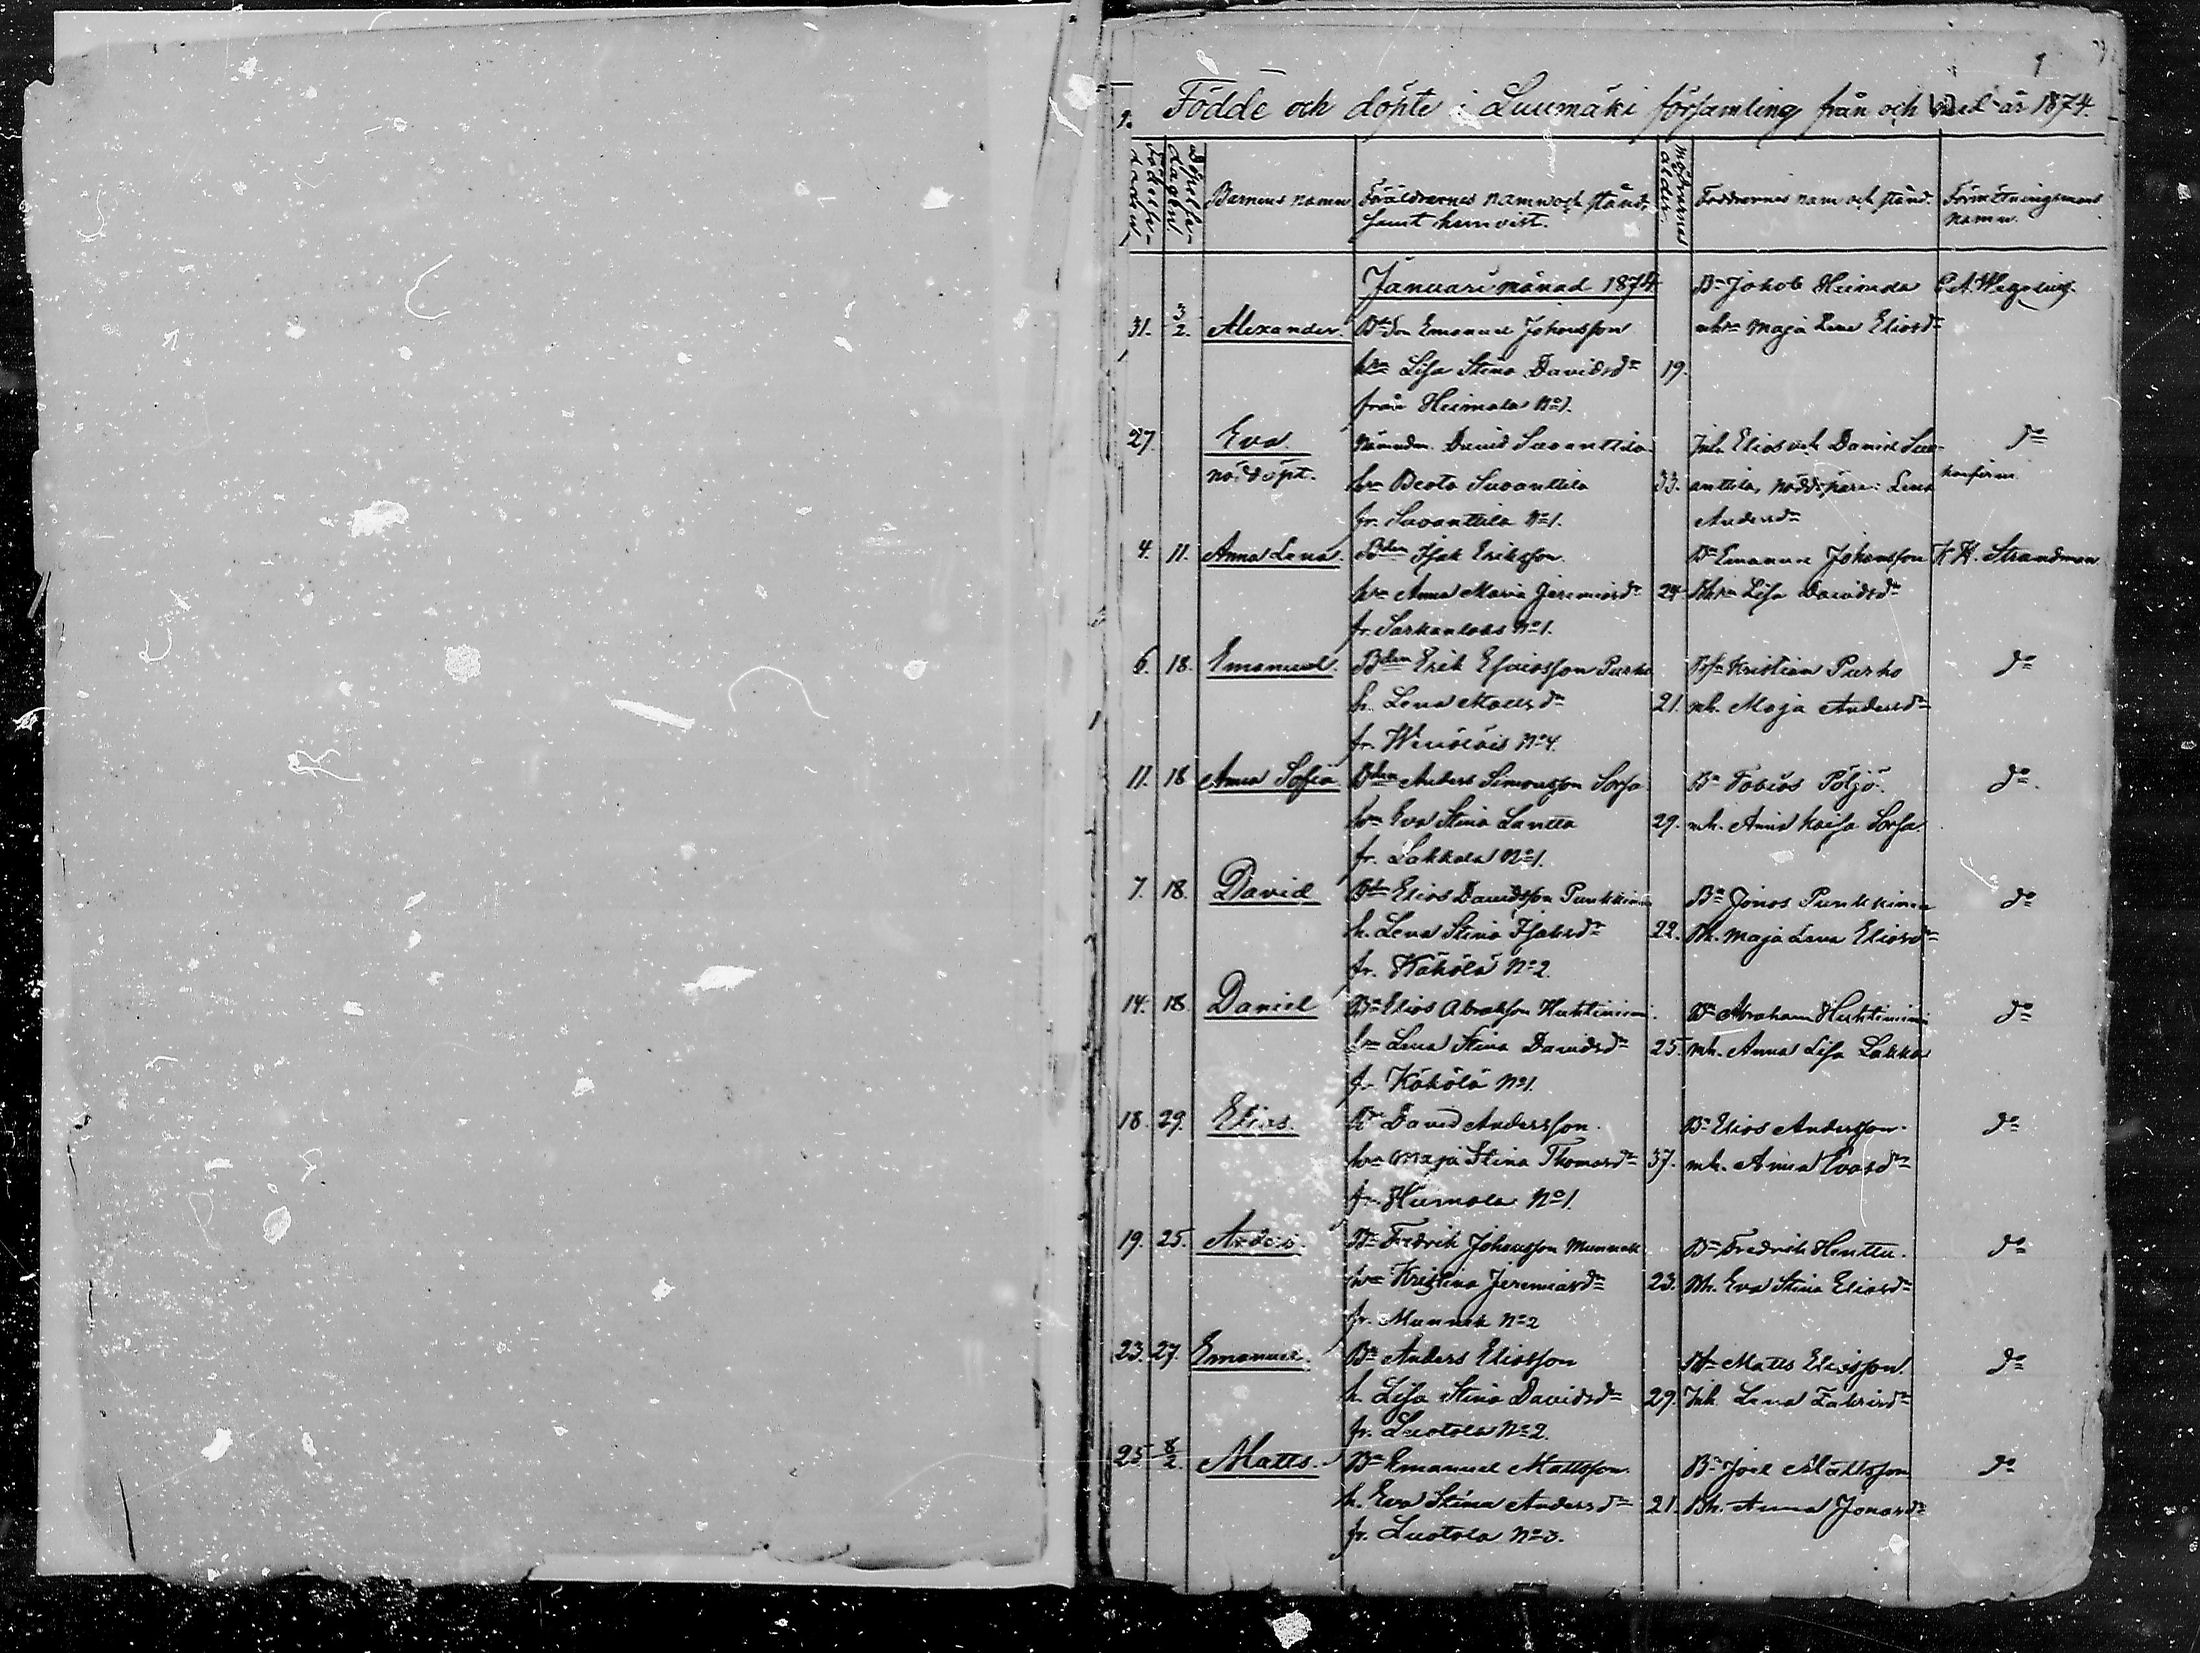 1
Födde och döpte i Luumäki församling från och med år 1874.
Födelse-dagens
Döpelse-dagens
Barnens namn
Föräldrarnes namn och stånd,
samt hemvist.
Mödrarnes ålder.
Faddrarnes nam och stånd.
Förrättningsmans
namn.
Januari månad 1874
31. 3/2. Alexander. Bdeson Emanuel Johansson
hru Lisa Stina Davidsdr 19.
från Heimala No 1.
Bn Jakob Heimala
mhru Maja Lena Eliasdr
27. Eva nöddöpt. Nämndm. David Suoanttila
hru Beata Suoanttila 33.
fr. Suoanttila No 1.
Inh. Elias och Daniel Suo-
anttila, nöddöpare: Lena
Andersdr
do
konfirm.
4. 11. Anna Lena. Bden Isak Eriksson.
hru Anna Maria Jeremiasdr 24.
fr. Sarkalaks No 1.
Bn Emanuel Johansson
Lisa Davidsdr
K. H. Strandman.
6. 18. Emanuel. Bden Erik Esaiasson Purho
h. Lena Mattsdr 21.
fr. No 4.
Kristian Purho
mh. Maja Andersdr
do
11. 18 Anna Sofia. Bden Anders Simonsson Sorsa
hru Eva Stina Lantta 29.
fr. Lakkala No 1.
Bn Tobias Pöljö.
mh. Anna Kaisa Sorsa.
do
7. 18. David Bdn Elias Davidsson Punkkinen
h. Lena Stina Isaksdr 22.
fr. Kökölä No 2.
Bn Jonas Punkkinen
Bh. Maja Lena Eliasdr
do
14. 18 Daniel Bn Elias Abrahsson Huhtininen.
hru Lena Stina Davidsdr 25.
fr. Kökölä No 1.
Bn Abraham Huhtininen
mh. Anna Lisa Lakka
do
18. 29. Elias. Bn David Andersson.
hru Maja Stina Thomasdr 37.
fr. Heimala No 1.
Bn Elias Andersson.
mh. Anna Evasdr
do
19. 25. Bn Fredrik Johansson Munnek
hru Kristina Jeremiasdr 23.
fr. Munnek No 2
Bn Fredrik Henttu.
Bh. Eva Stina Eliasdr
do
23. 27. Emanuel. Bn Anders Eliasson
h. Lisa Stina Davidsdr 29.
fr. Luotola No 2.
Bn Matts Eliasson.
Inh. Lena
do
25 8/2. Matts. Bn Emanuel Mattsson.
h. Eva Stina Andersdr 21.
fr. Luotola No 3.
Bn Joel Mattsson
Bh. Anna Jonasdr
do